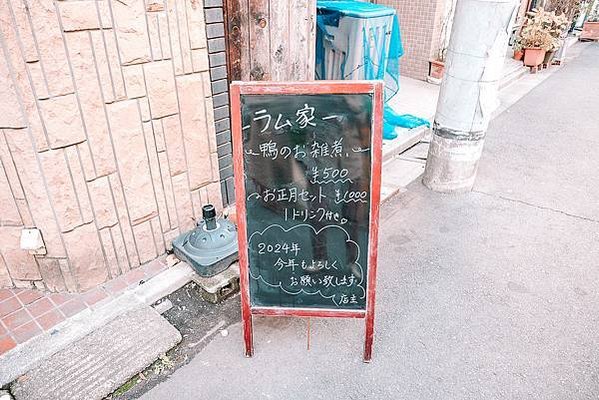 ラム家
鴨のお雑煮
¥500
お正月セット ¥1,000
1ドリンク付。
2024年
今年もよろしく
お願い致します。
店主